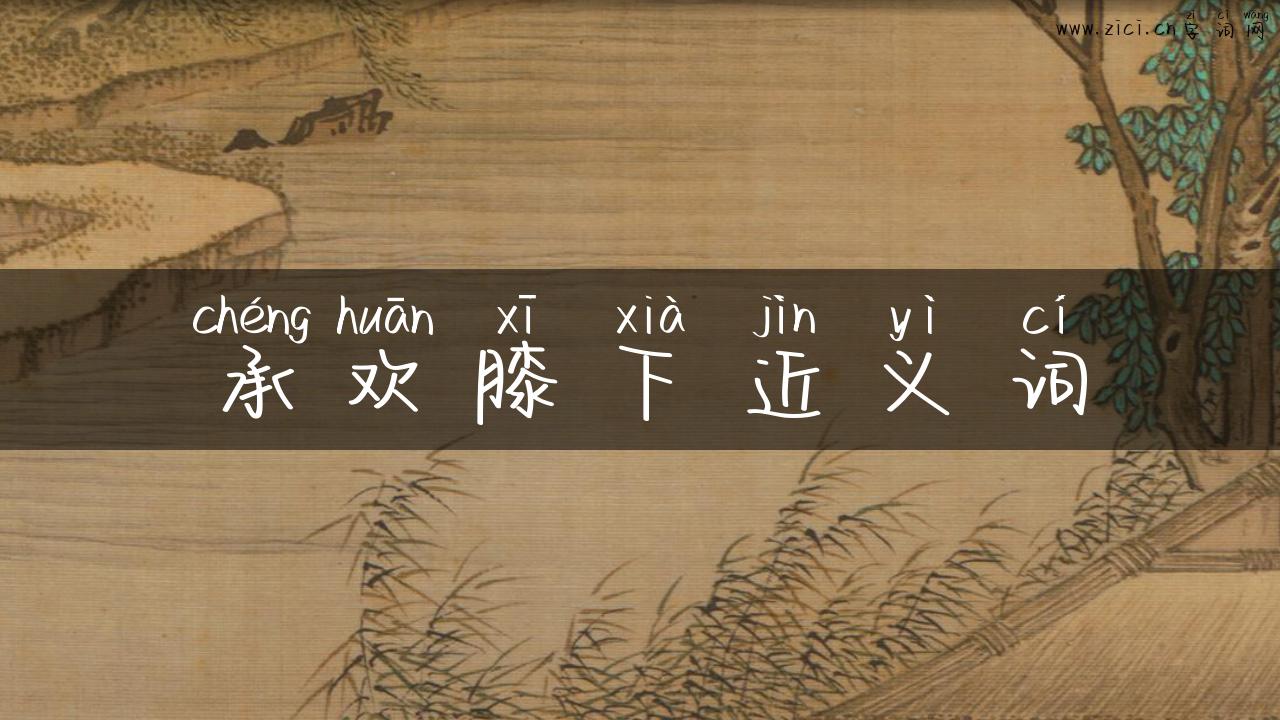 zì cí wǎng
www.zici.cn字词网
chéng huān xī xià jìn yì cí
承欢膝下近义词